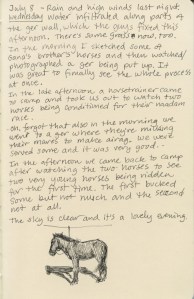 July 8 - Rain and high winds last night
Wednesday water infiltrated along parts of
the ger wall, which the guys fixed this
afternoon. There's some goats out, too.
In the morning I sketched some of
Gana's brother's horses and then watched/
photographed a ger being put up. It
was great to finally see the whole process
at once.
In the late afternoon a horsetrainer came
to camp and took us out to watch two
horses being conditioned for their naadam
race.
Oh, forgot that also in the morning we
went to a ger where they're milking
their mares to make airag. We were
served some and it was very good.
In the afternoon we came back to camp
after watching the two horses to see
two very young horses being ridden
for the first time. The first bucked
some but not much and the second
not at all.
The sky is clear and it's a lovely evening